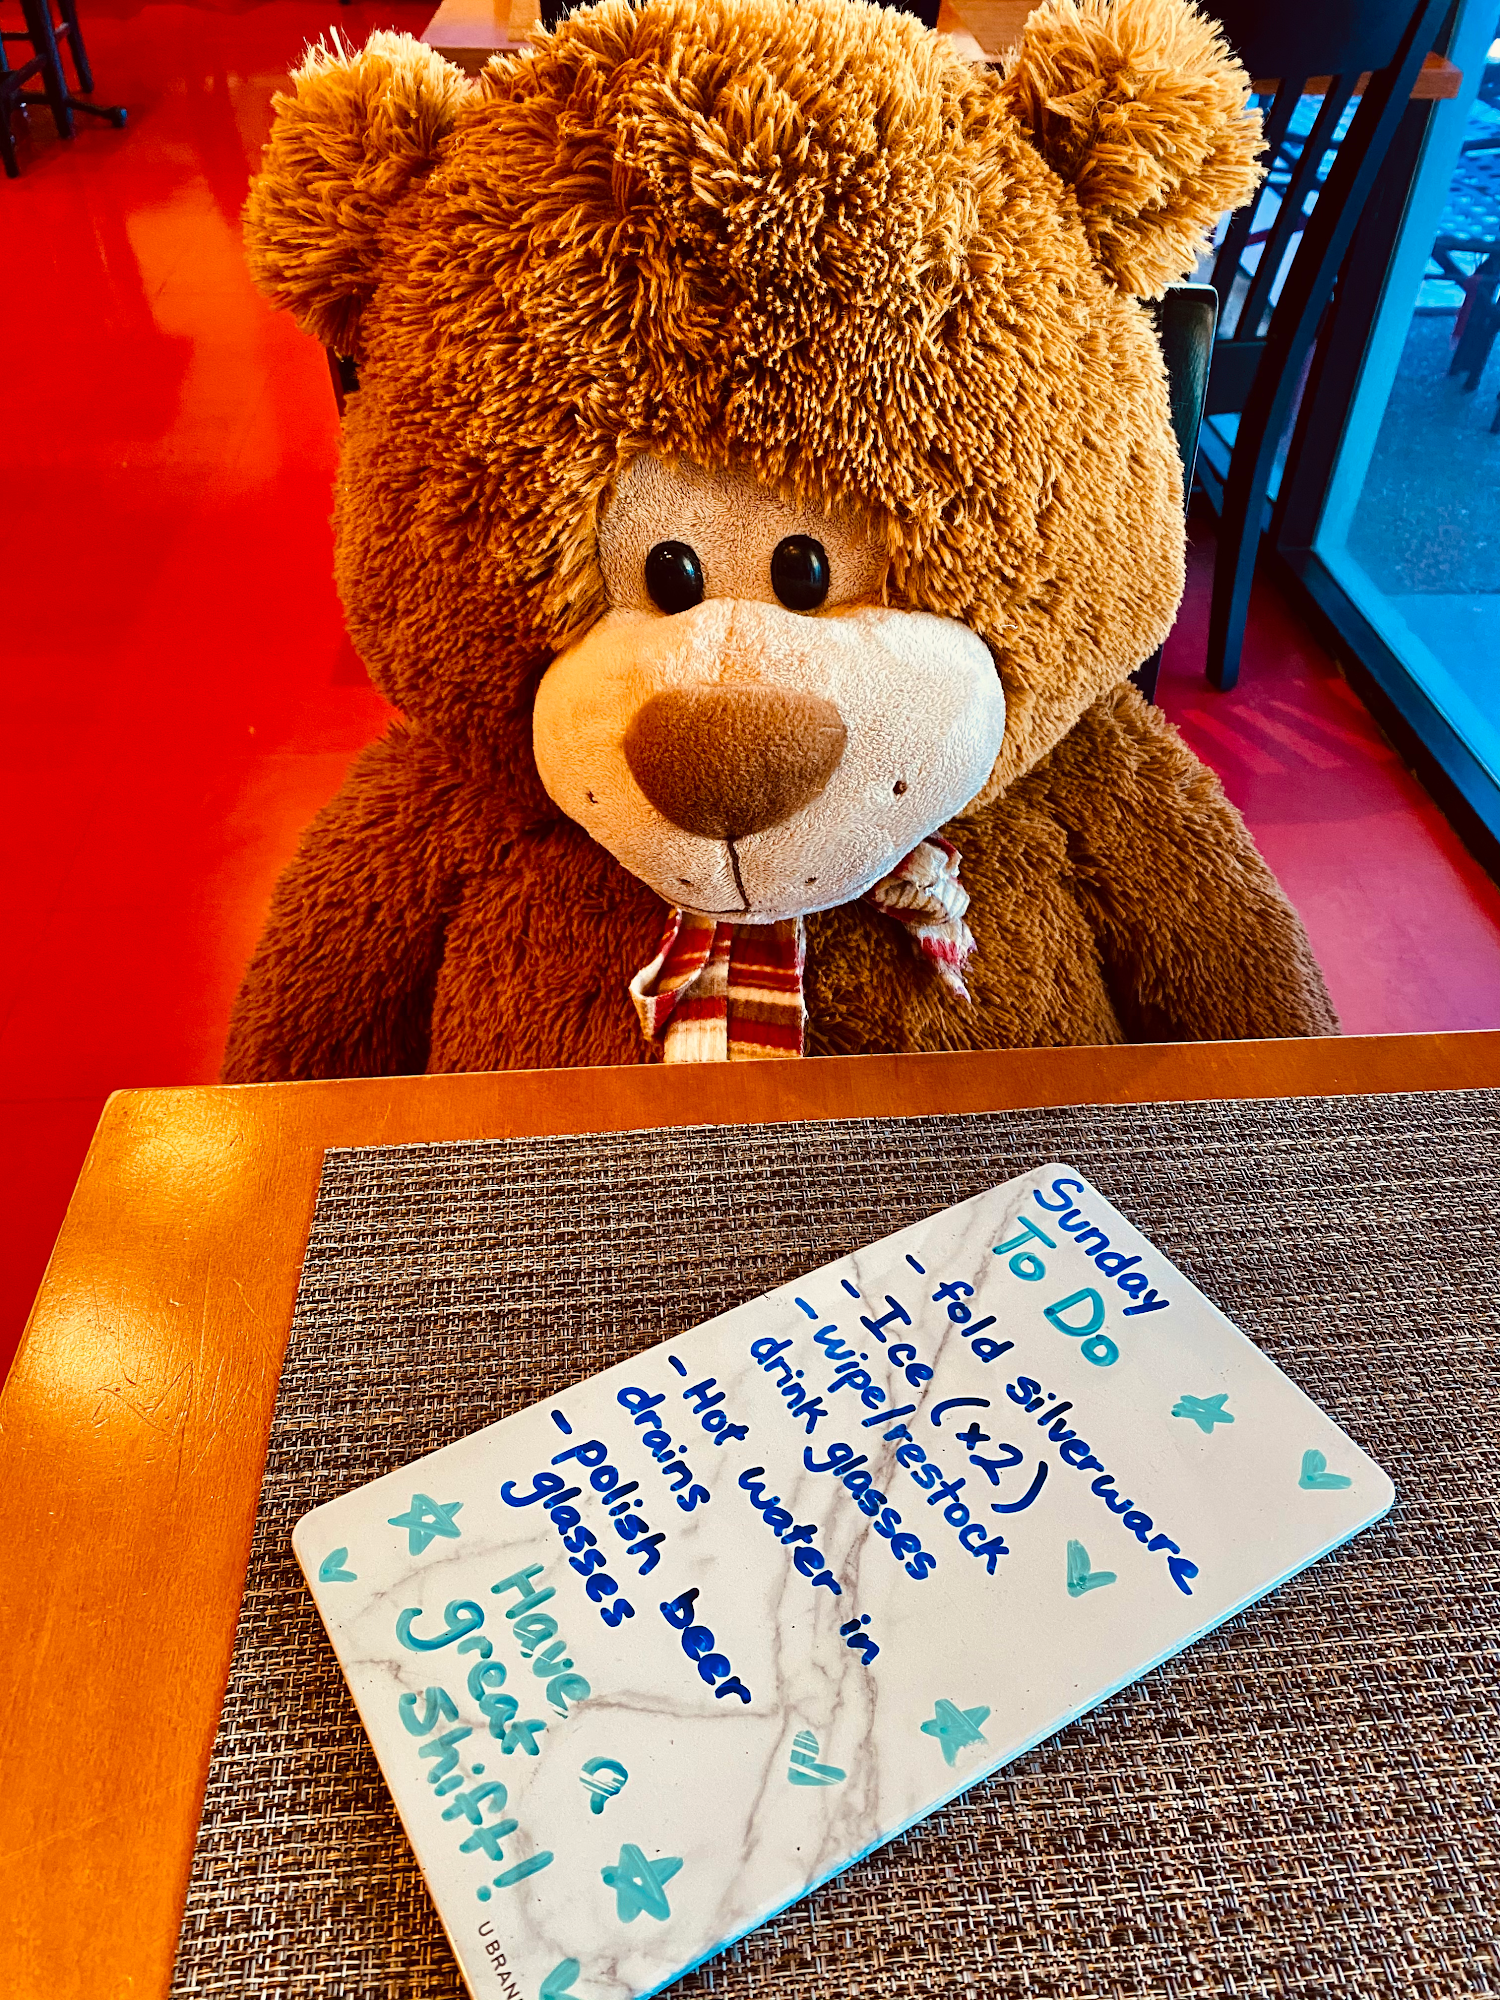 Sunday
To Do
- fold silverware
- Ice (x2)
- wipe/restock
drink glasses
- Hot water in
drains
- polish beer
glasses
Have a
great
Shift!